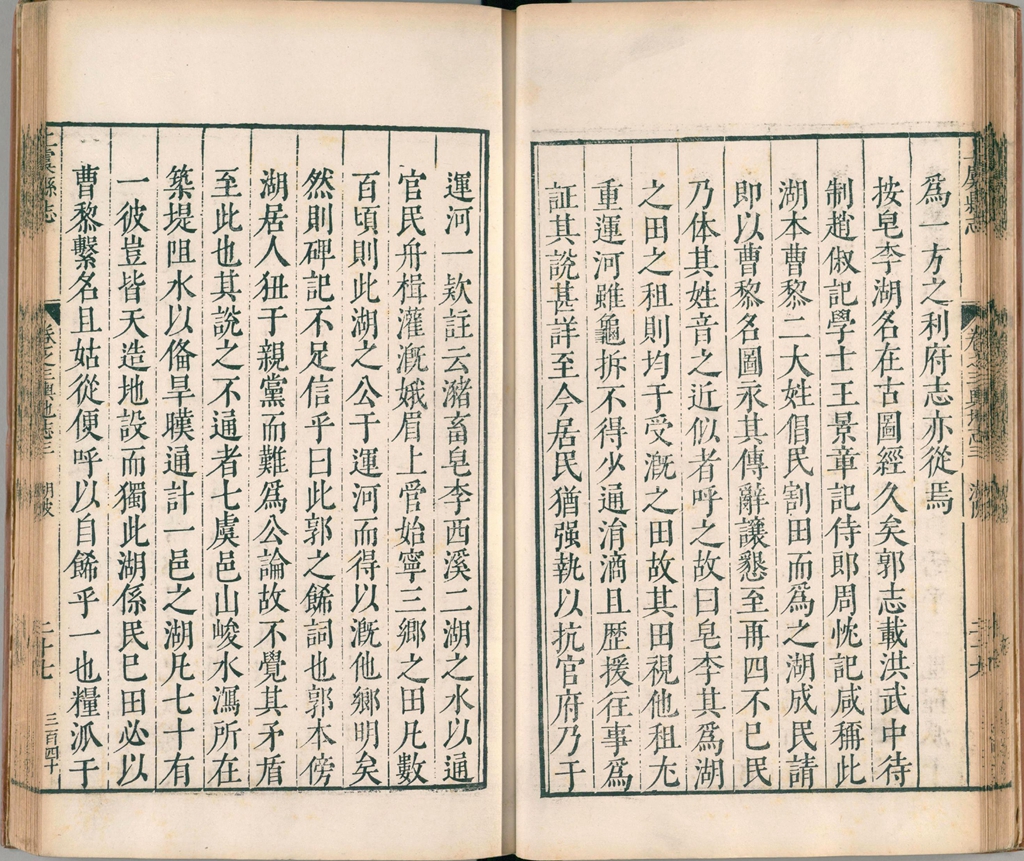 爲一方之利府志亦從焉
按皂李湖名在古圖經久矣郭志載洪武中待
制趙俶記學士王景章記侍郎周忱記咸稱此
湖本曹黎二大姓倡民割田而爲之湖成民請
即以曹黎名圖永其傳辭讓懇至再四不已民
乃体其姓音之近似者呼之故曰皂李其爲湖
之田之租則均于受漑之田故其田視他租尤
重運河雖龜拆不得少通涓滴且歷援往事爲
証其說甚詳至今居民猶强執以抗官府乃于
運河一欵註云瀦畜皂李西溪二湖之水以通
官民舟楫灌漑娥眉上管始寧三鄉之田凡數
百頃則此湖之公于運河而得以漑他鄉明矣
然則碑記不足信乎曰此郭之餙詞也郭本傍
湖居人狃于親黨而難爲公論故不覺其矛盾
至此也其說之不通者七虞邑山峻水瀉所在
築堤阻水以俻旱暵通計一邑之湖凡七十有
一彼豈皆天造地設而獨此湖係民巳田必以
曹黎繫名且姑從便呼以自餙乎一也糧派于
上虞縣志
卷之三輿地志三
二十七
三百四十